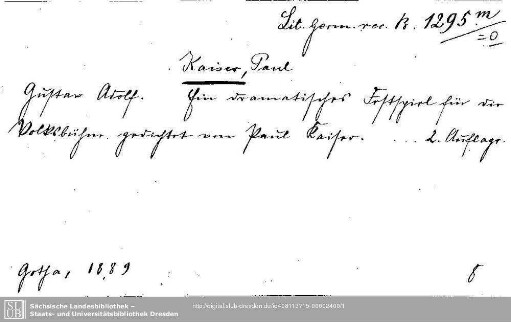 Lit. Germ. rec. B. 1295 m
=0
Kaiser, Paul
Gustav Adolf. Ein dramatisches Festspiel für die
Volksbühne gedichtet von Paul Kaiser. ... 2. Auflage.
Gotha, 1889
8
SLUB
Sächsische Landesbibliothek –
Staats- und Universitätsbibliothek Dresden